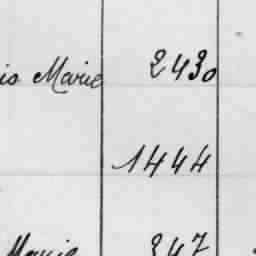 is Marie 2430
1444
Marie 347